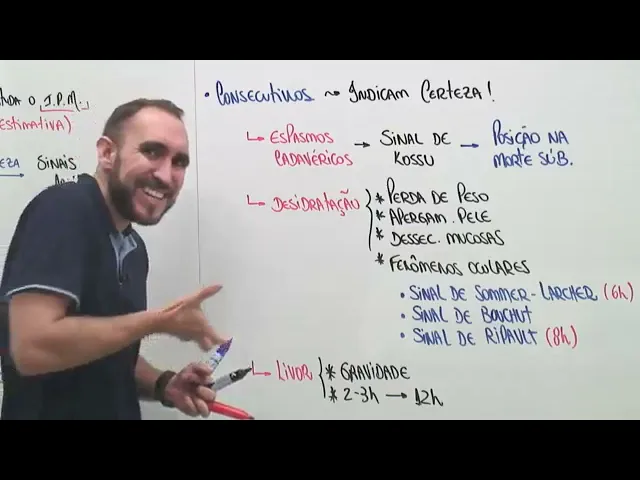 O I.P.M.
ESTIMATIVA)
SINAIS
• CONSECUTIVOS ~> INDICAM CERTEZA!
↳ ESPASMOS CADAVÉRICOS → SINAL DE KOSSU → POSIÇÃO NA MORTE SÚB.
↳ DESIDRATAÇÃO
* PERDA DE PESO
* APERGAM. PELE
* DESSEC. MUCOSAS
* FENÔMENOS OCULARES
• SINAL DE SOMMER-LARCHER (6h)
• SINAL DE BOUCHUT
• SINAL DE RIPAULT (8h)
↳ LIVOR
* GRAVIDADE
* 2-3h → 12h